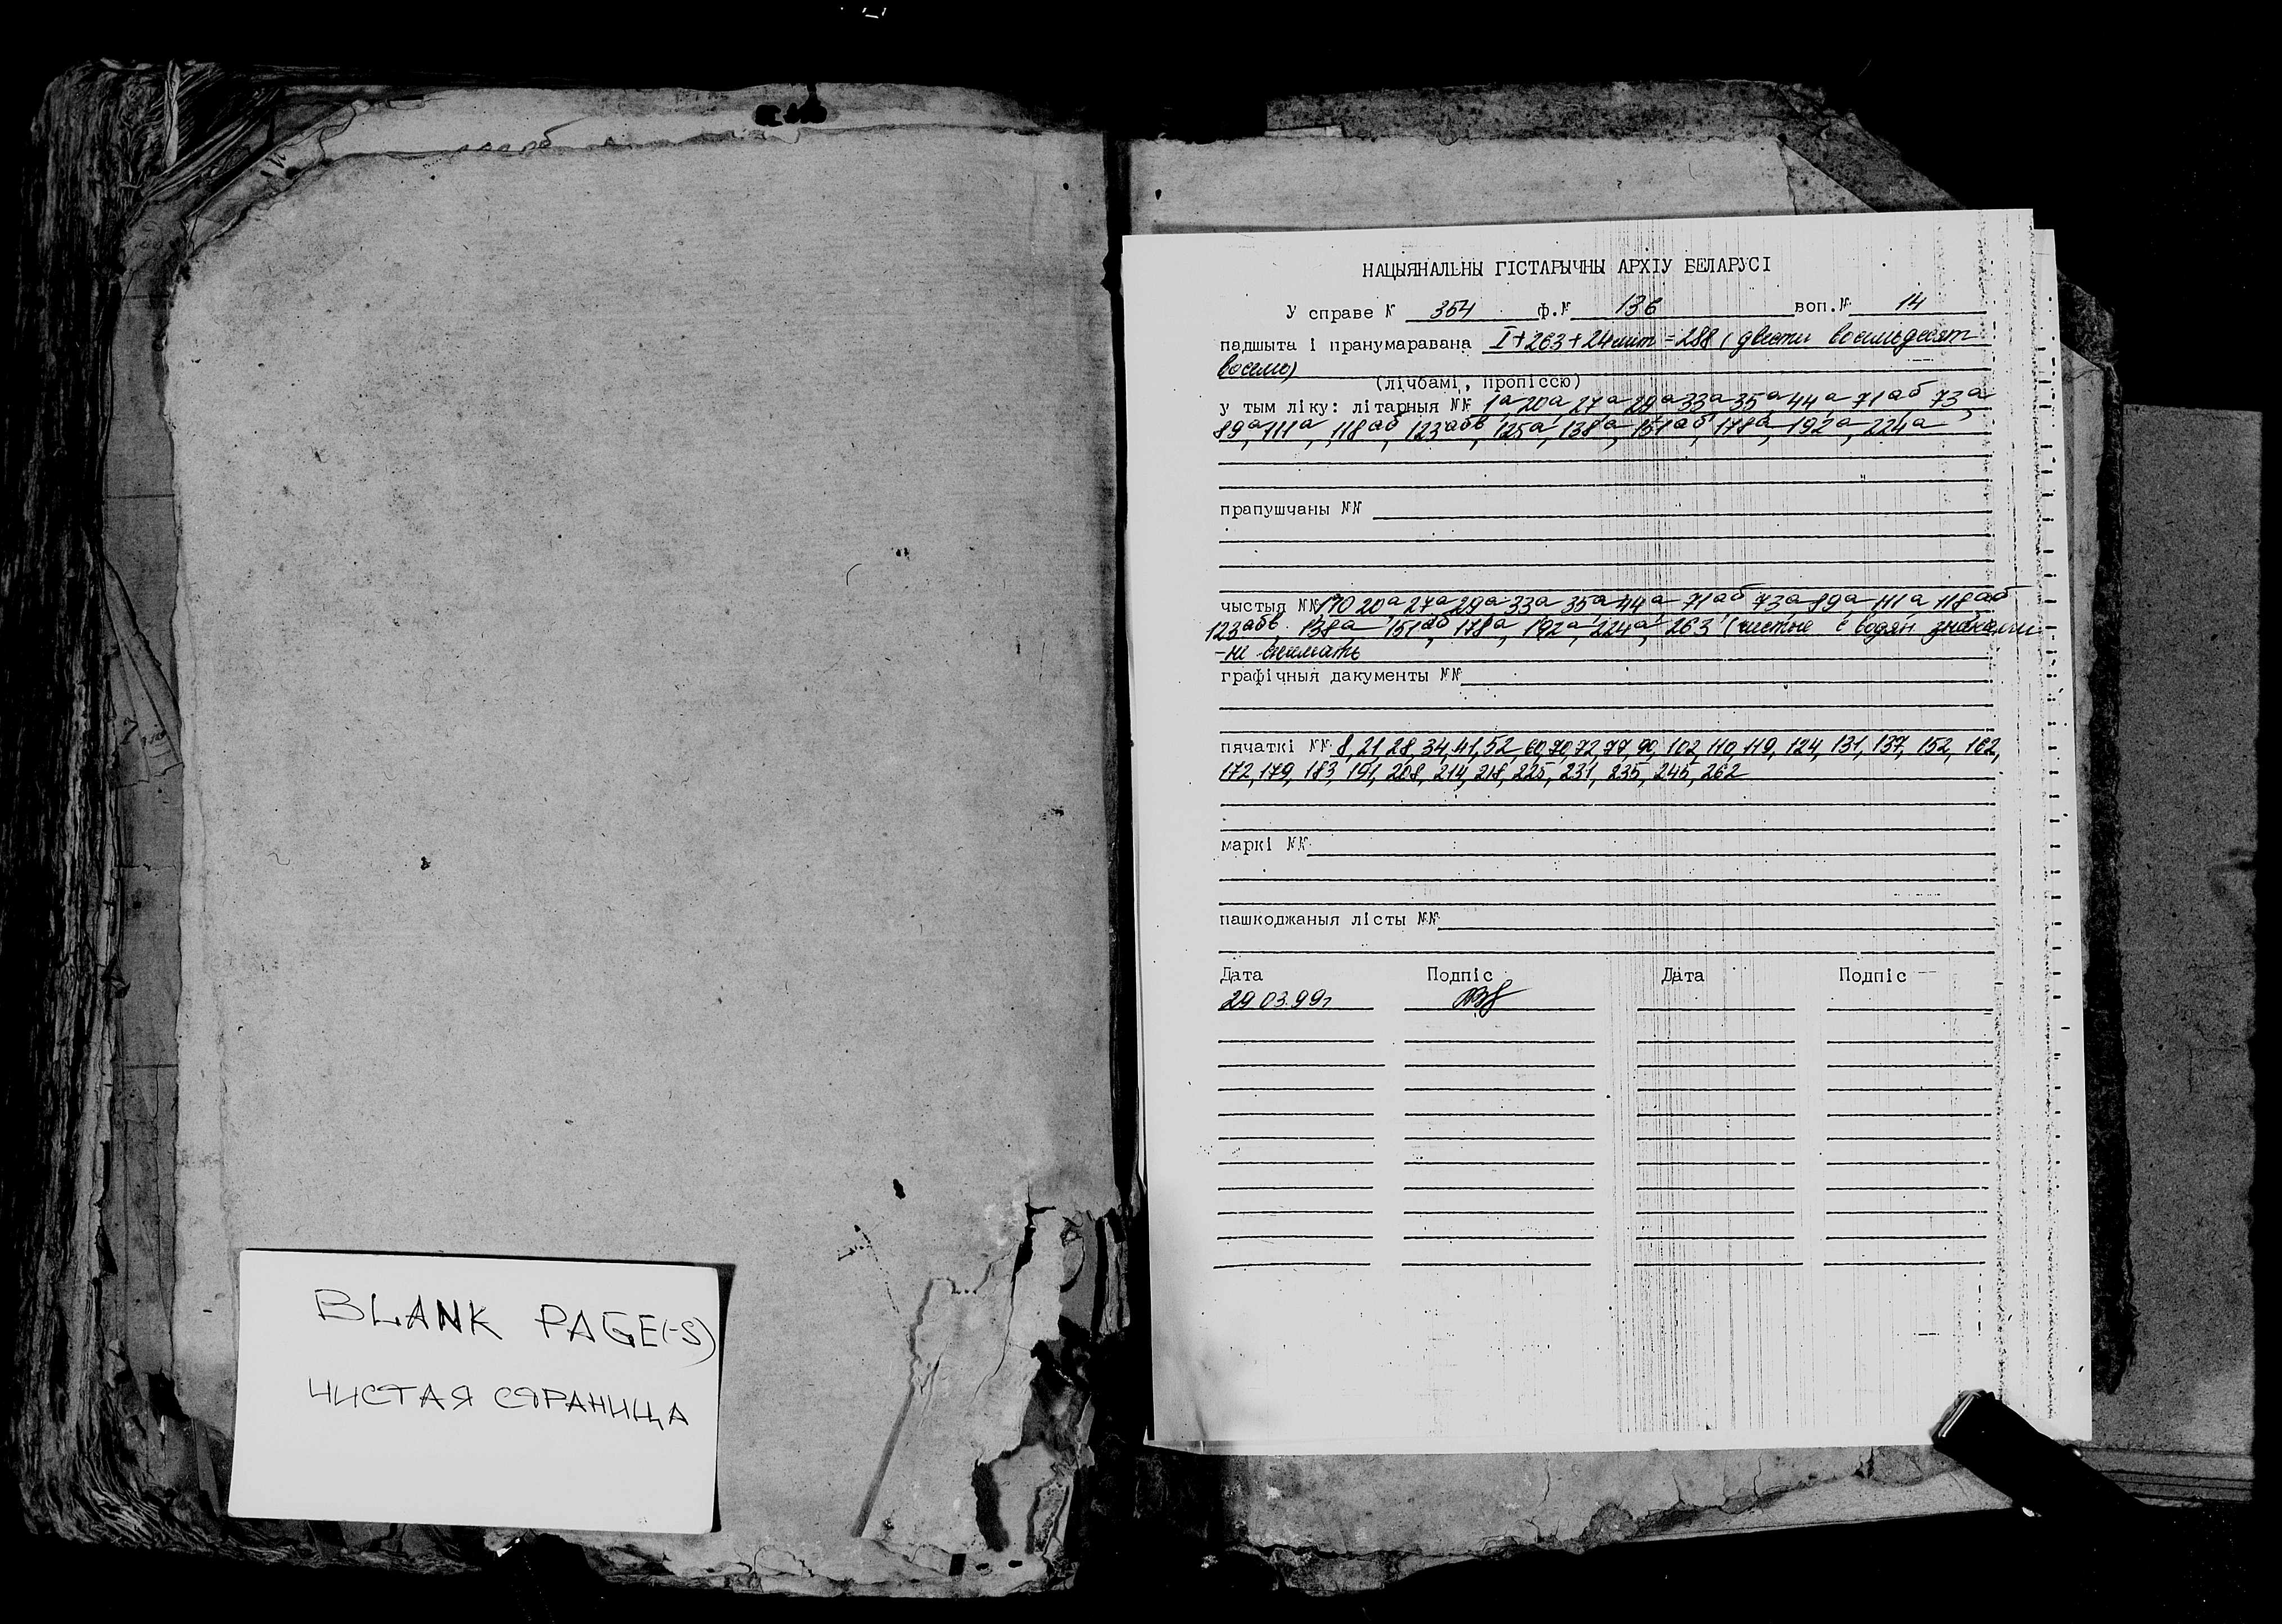 BLANK PAGE(-S)
ЧИСТАЯ СТРАНИЦА
НАЦЫЯНАЛЬНЫ ГІСТАРЫЧНЫ АРХІУ БЕЛАРУСІ
У справе № 354 ф.№ 136 воп.№ 14
падшыта і пранумаравана I+263+24лит=288 (двести восемьдесят
восемь)
(лічбамі, пропіссю)
у тым ліку: літарныя №№ 1а, 20а, 27а, 29а, 33а, 35а, 44а, 71аб, 73а,
89а, 111а, 118аб, 123абв, 125а, 138а, 151аб, 178а, 192а, 224а
прапушчаны №№
чыстыя №№ 20а, 27а, 29а, 33а, 35а, 44а, 71аб, 73а, 89а, 111а, 118аб
123абв, 138а, 151аб, 178а, 192а, 224а, 263 (чистые с водян знаками
-не снимать
графічныя дакументы №№
пячаткі №№ 8, 21, 28, 34, 41, 52, 60, 70, 72, 77, 90, 102, 110, 119, 124, 131, 137, 152, 162,
172, 179, 183, 191, 208, 214, 218, 225, 231, 235, 245, 262
маркі №№
пашкоджаныя лісты №№
Дата Подпіс Дата Подпіс
29.03.99г